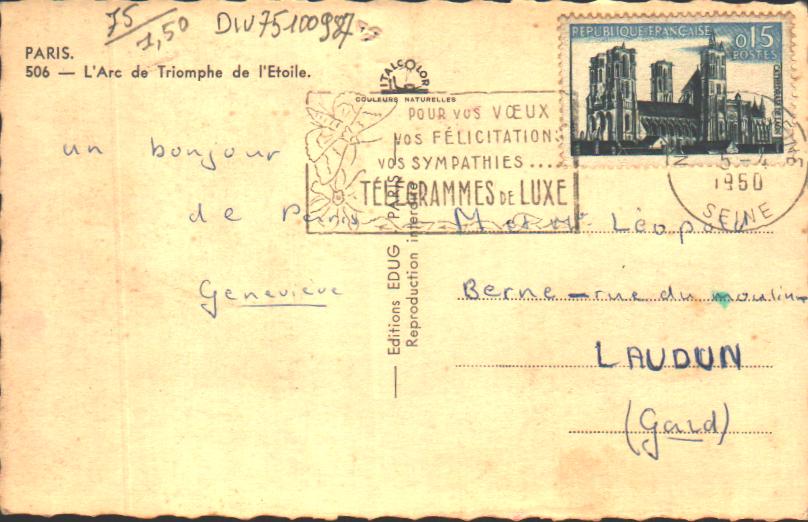 75
1,50
DIV75100987
PARIS.
506 — L'Arc de Triomphe de l'Etoile.
ITALCOLOR
COULEURS NATURELLES
REPUBLIQUE FRANÇAISE
0,15
POSTES
CATHÉDRALE DE LAON
POUR VOS VŒUX
VOS FÉLICITATIONS
VOS SYMPATHIES...
TÉLÉGRAMMES DE LUXE
5-4
1960
SEINE
un bonjour
de Paris
Geneviève
Editions EDUG - PARIS
Reproduction interdite
M et Me Léopold
Berne - rue du moulin
LAUDUN
(Gard)